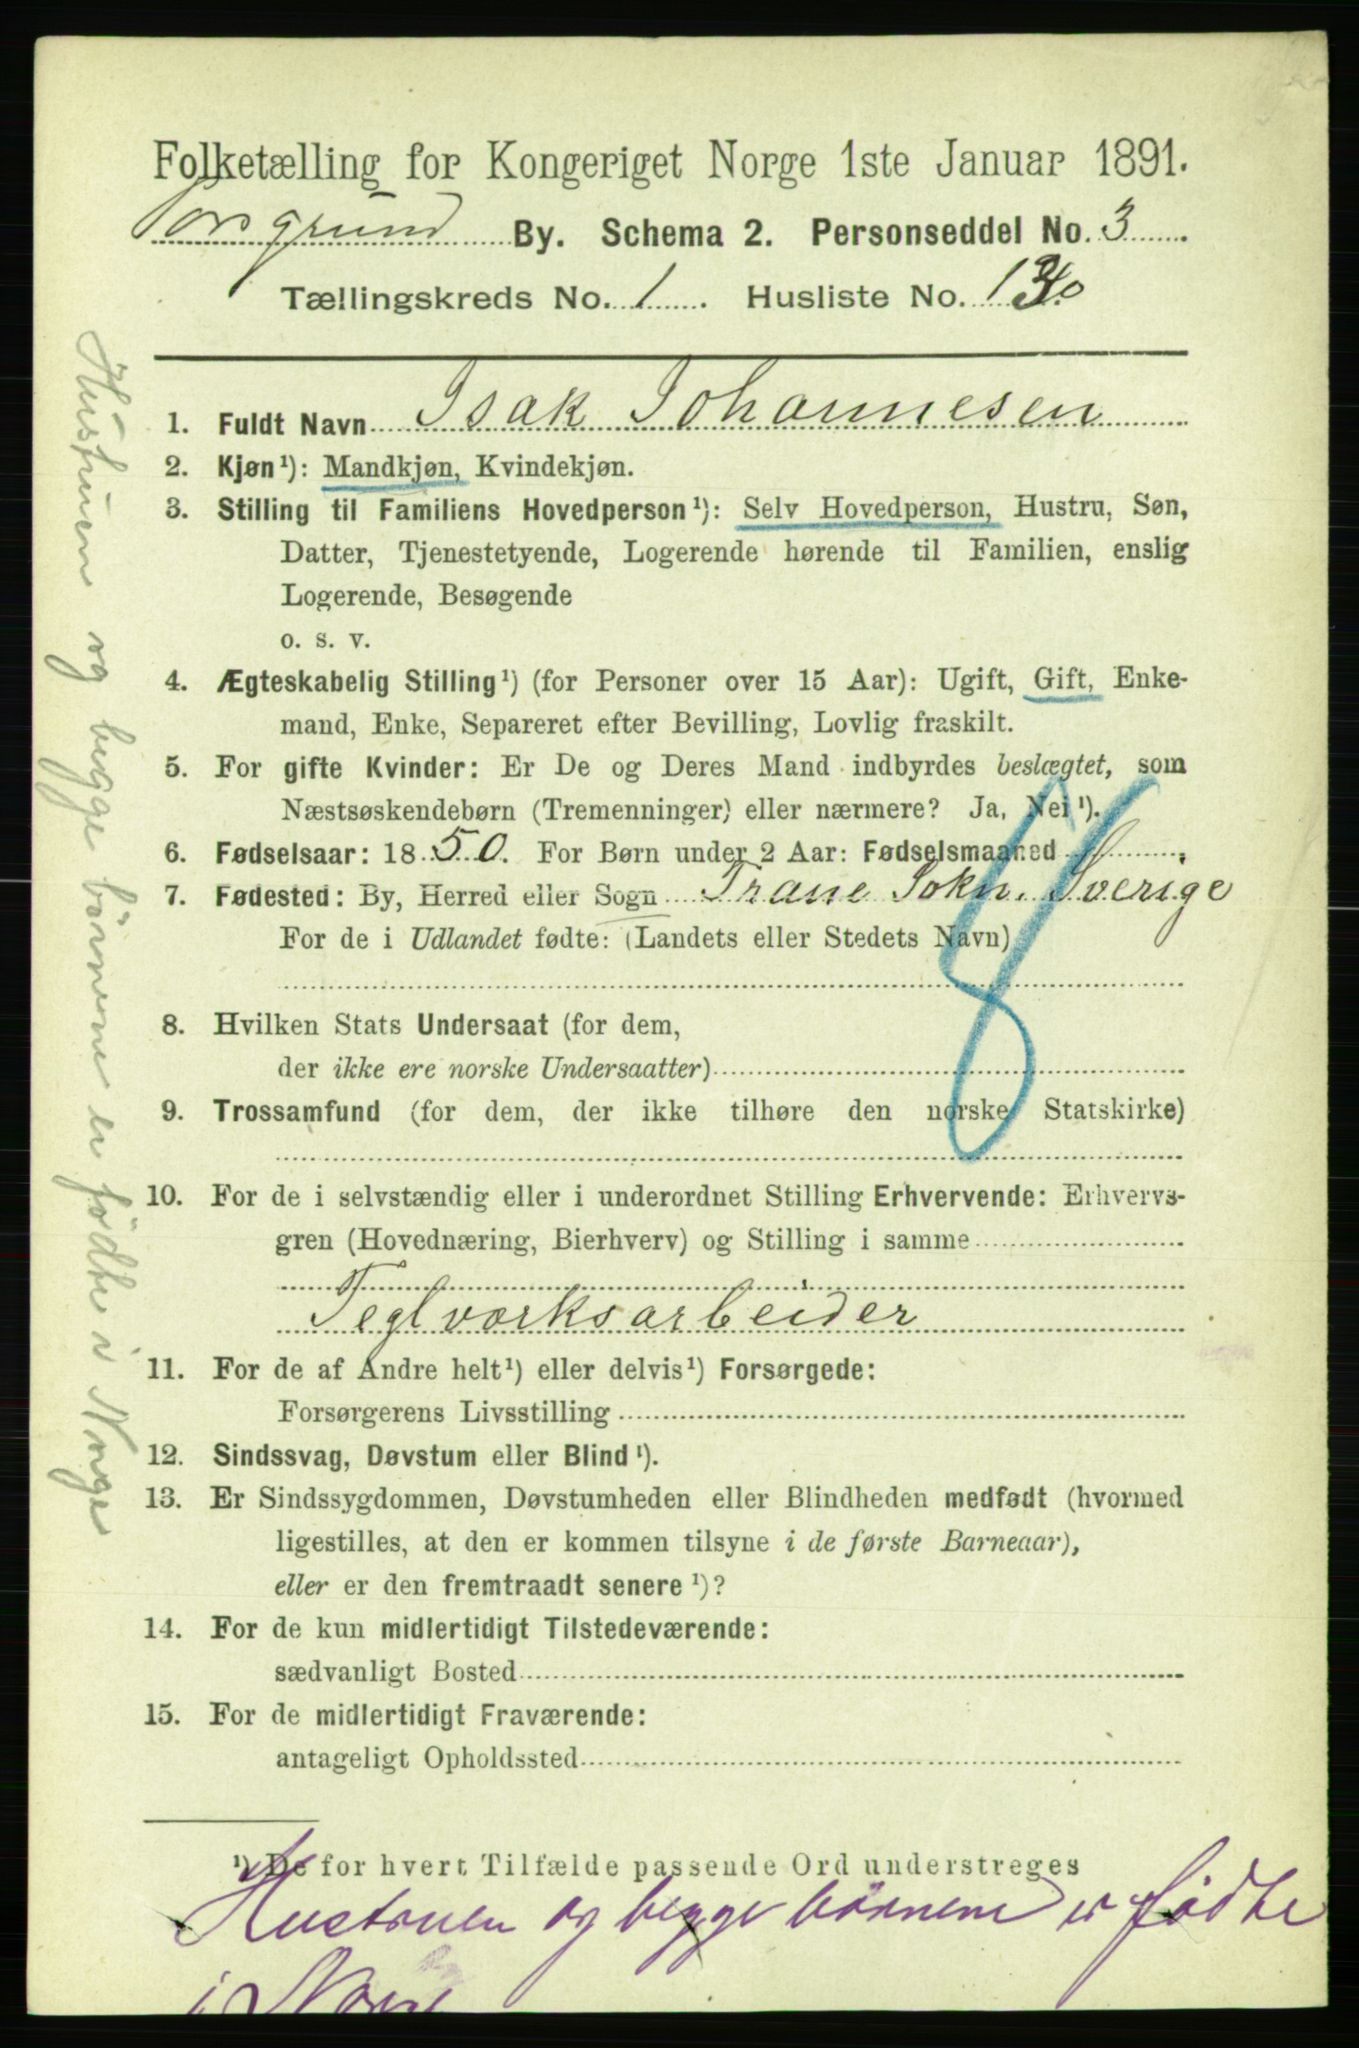 Folketælling for Kongeriget Norge 1ste Januar 1891.
Porsgrund By. Schema 2. Personseddel No. 3
Tællingskreds No. 1. Husliste No.
1. Fuldt Navn Isak Johannesen
2. Kjøn¹): Mandkjøn, Kvindekjøn.
3. Stilling til Familiens Hovedperson¹): Selv Hovedperson, Hustru, Søn,
Datter, Tjenestetyende, Logerende hørende til Familien, enslig
Logerende, Besøgende
o. s. v.
4. Ægteskabelig Stilling¹) (for Personer over 15 Aar): Ugift, Gift, Enke-
mand, Enke, Separeret efter Bevilling, Lovlig fraskilt.
5. For gifte Kvinder: Er De og Deres Mand indbyrdes beslægtet, som
Næstsøskendebørn (Tremenninger) eller nærmere? Ja, Nei¹).
6. Fødselsaar: 1850. For Børn under 2 Aar: Fødselsmaaned
7. Fødested: By, Herred eller Sogn Trane Sokn. Sverige
For de i Udlandet fødte: (Landets eller Stedets Navn)
8. Hvilken Stats Undersaat (for dem,
der ikke ere norske Undersaatter)
9. Trossamfund (for dem, der ikke tilhøre den norske Statskirke)
10. For de i selvstændig eller i underordnet Stilling Erhvervende: Erhvervs-
gren (Hovednæring, Bierhverv) og Stilling i samme
Teglværksarbeider
11. For de af Andre helt¹) eller delvis¹) Forsørgede:
Forsørgerens Livsstilling
12. Sindssvag, Døvstum eller Blind¹).
13. Er Sindssygdommen, Døvstumheden eller Blindheden medfødt (hvormed
ligestilles, at den er kommen tilsyne i de første Barneaar),
eller er den fremtraadt senere¹)?
14. For de kun midlertidigt Tilstedeværende:
sædvanligt Bosted
15. For de midlertidigt Fraværende:
antageligt Opholdssted
¹) De for hvert Tilfælde passende Ord understreges
Hustruen og begge börnene er födte
i Norge
Hustruen og begge börnene er födte i Norge